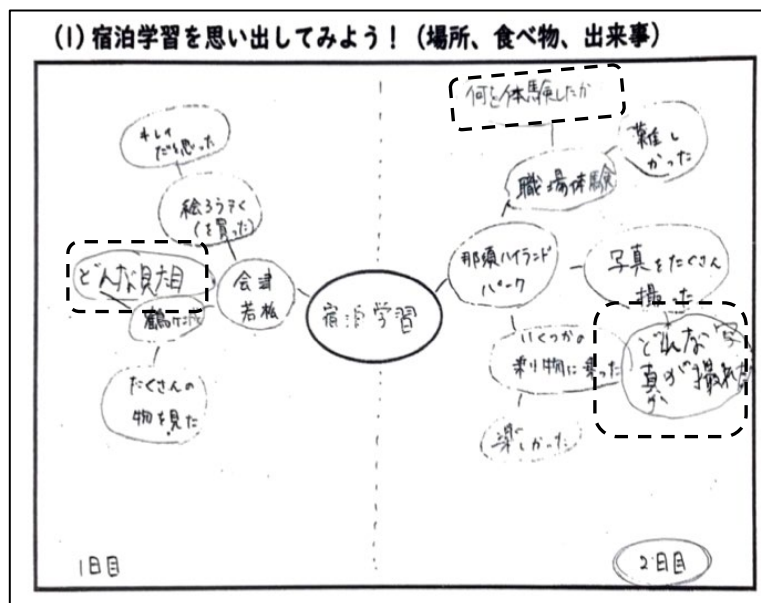 (1) 宿泊学習を思い出してみよう! (場所、食べ物、出来事)
きれい
だと思った
絵ろうそく
(を買った)
どんな見た目
会津
若松
鶴ヶ城
たくさんの
物を見た
宿泊学習
何を体験したか
難し
かった
職場体験
那須ハイランド
パーク
写真をたくさん
撮った
いくつかの
乗り物に乗った
どんな写
真が撮れた
か
楽しかった
1日目
2日目